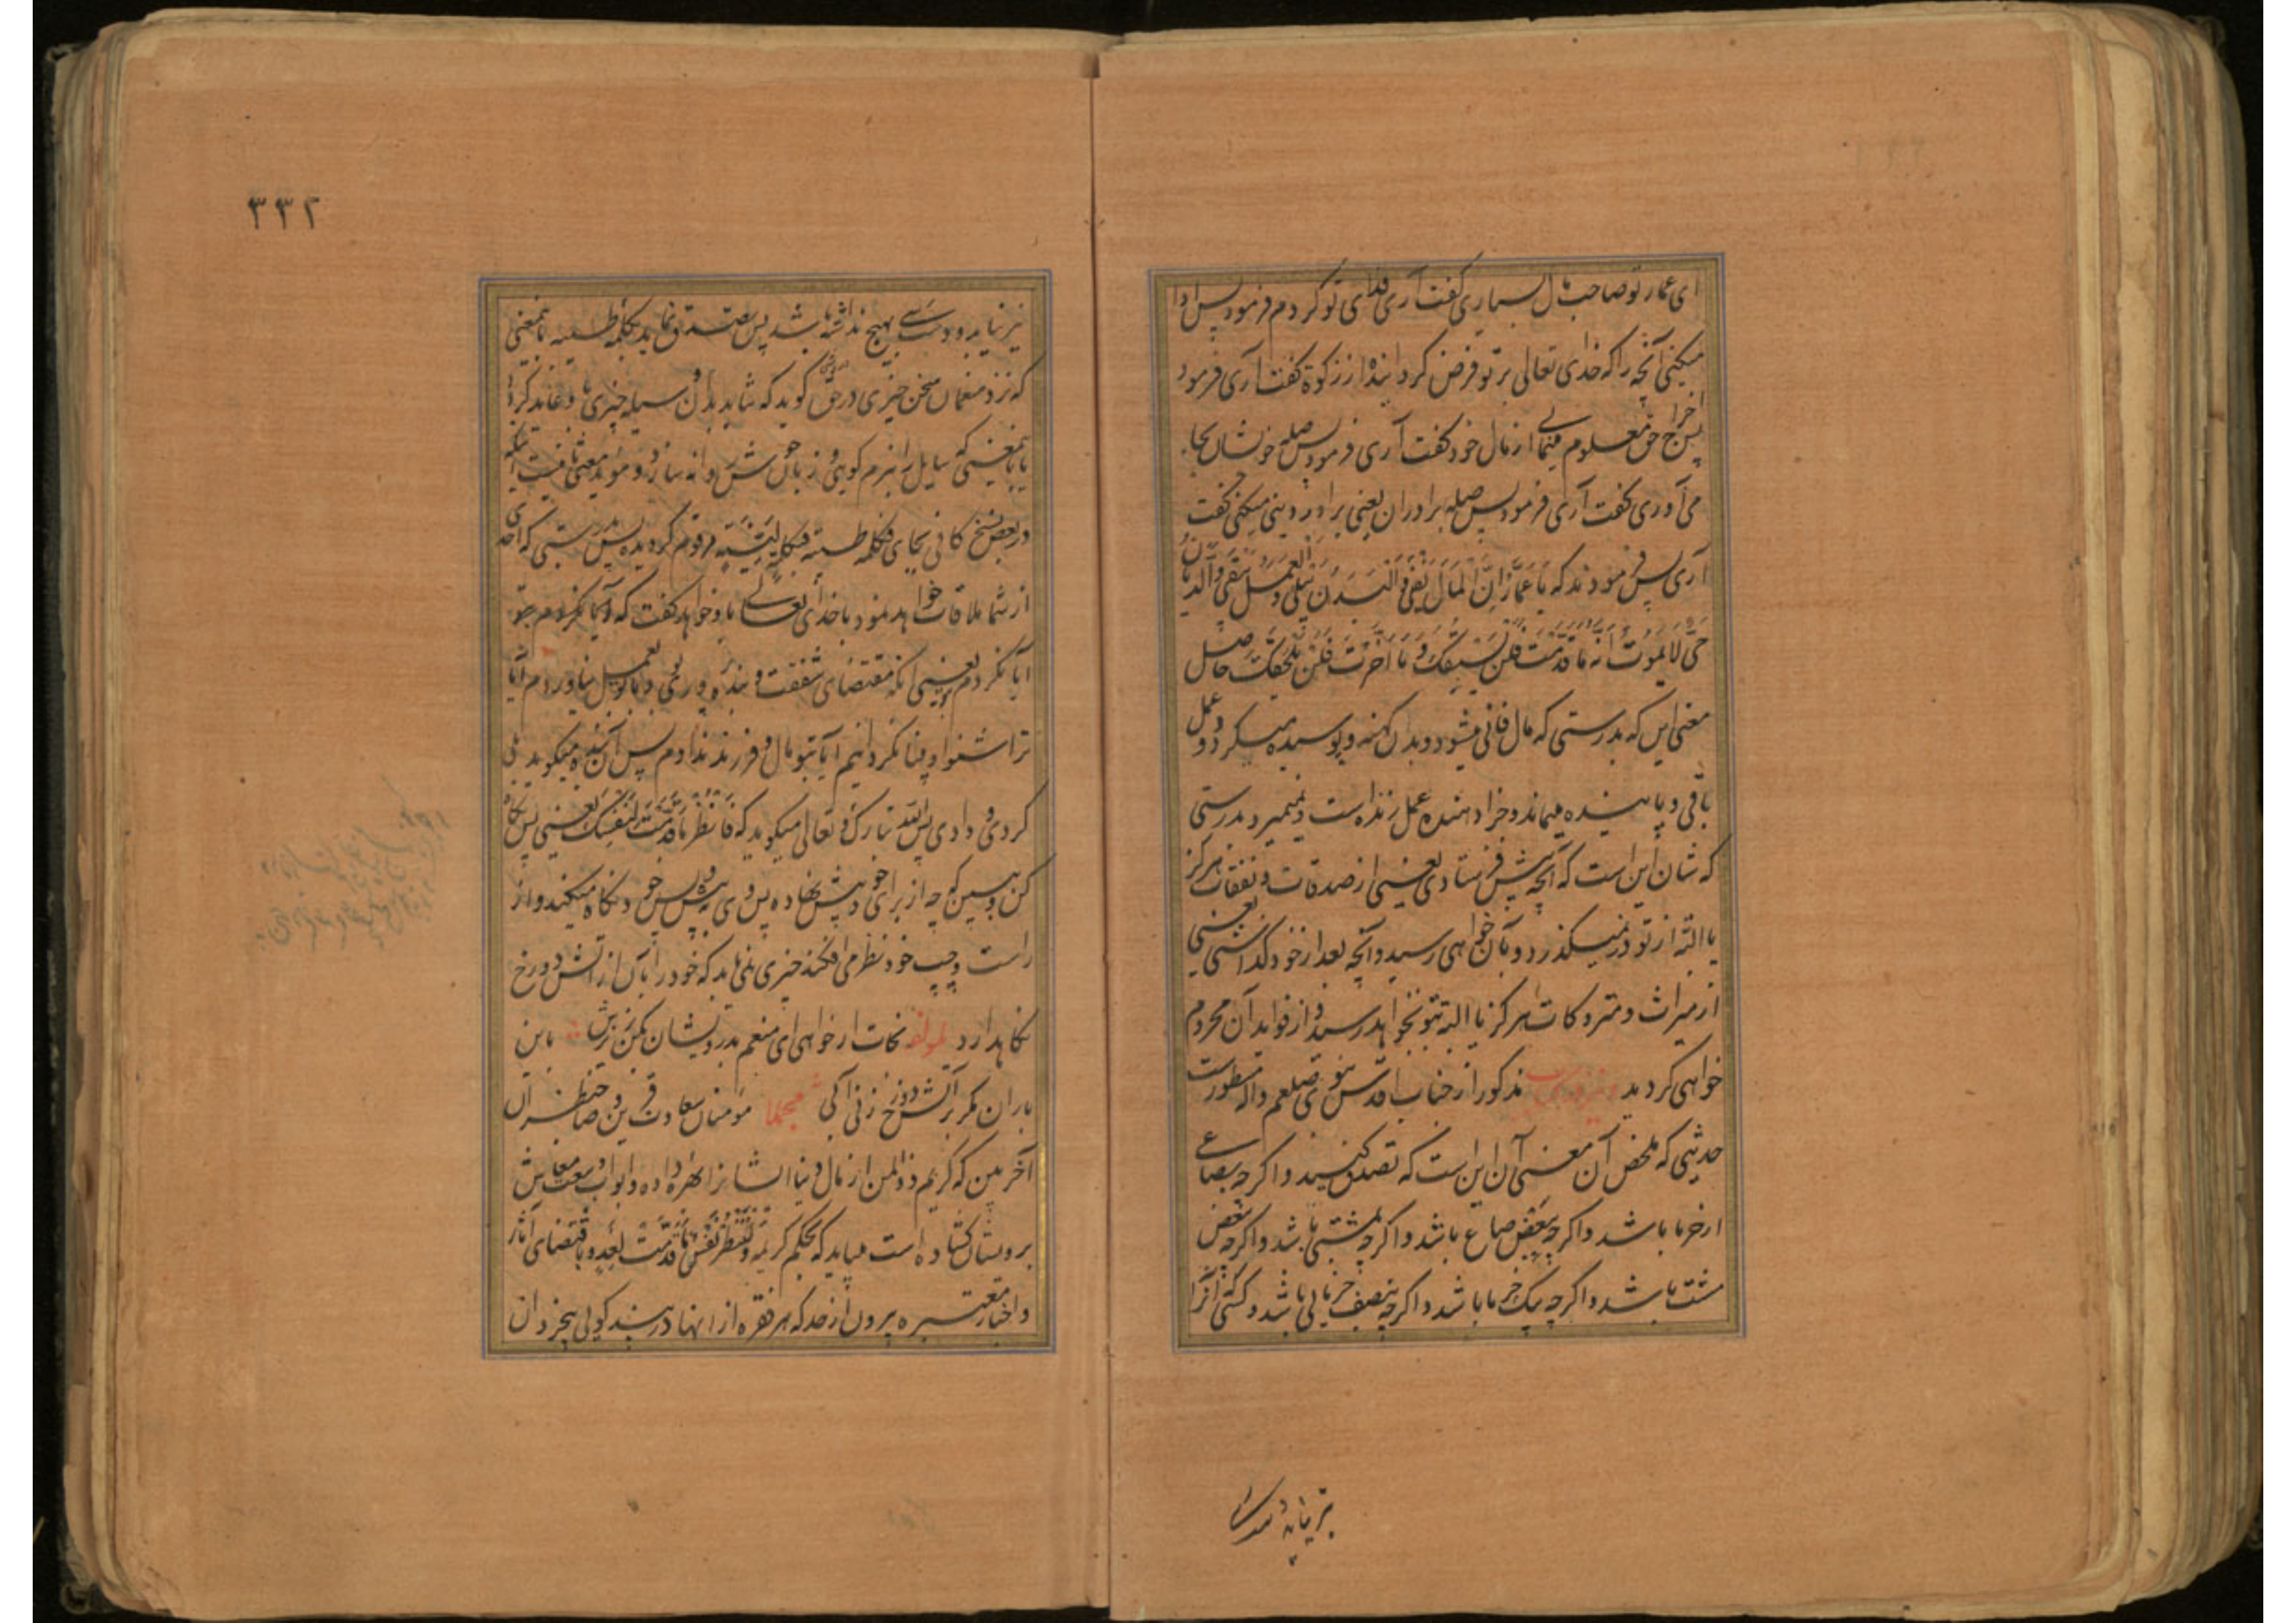 ای عمار تو صاحب مال بسیاری گفت آری فدای تو کردم فرمود پس ادا
میکنی آنچه را که خدای تعالی بر تو فرض کردانیده از زکوة گفت آری فرمود
پس اخراج حق معلوم مینمایی از مال خود گفت آری فرمود پس صله خویشان بجا
می آوری گفت آری فرمود پس صله برادران یعنی برادر دینی میکنی گفت
آری پس فرمودند که یا عمار ان المال یفنی والبدن یبلی والعمل یبقی والدیان
حی لا یموت انه ما قدمت فلن یسبقک وما اخرت فلن یلحقک حاصل
معنی این که بدرستی که مال فانی میشود و بدن کهنه و پوسیده میکردد و عمل
باقی و پاینده میماند و جزا دهنده عمل زنده است و نمیرد بدرستی
که شان این است که آنچه پیش فرستادی یعنی از صدقات و نفقات هرکز
یا البته از تو در نمیکذرد و بآن خواهی رسید و آنچه بعد از خود کذاشتی یعنی
از میراث و متروکات هرکز یا البته بتو نخواهد رسید و از فواید آن محروم
خواهی کردید مذکور از جناب اقدس نبوی صلعم واله مسطور است
حدیثی که ملخص آن معنی آن این است که تصدق کنید و اکرچه بصاعی
از خرما باشد و اکرچه ببعض صاع باشد و اکرچه بمشتی باشد و اکرچه ببعض
مشت باشد و اکرچه بیک خرما باشد و اکرچه بنصف خرمایی باشد و کسی آنرا
۳۳۲
نیز نیابد و دسترسی بهیچ نداشته باشد پس تصدق نماید بکلمه طیبه یا بمعنی
که نزد منعمان سخن خیری در حق گوید که شاید بدان وسیله چیزی عاید کردد
یا بمعنی که سایل را بنرم کویی و زبان خوش روانه سازد و موید معنی ثانیست اینکه
در بعض نسخ کافی بجای فبکلمه طیبة فبکلمة لینة مرقوم کردیده پس بدرستی که احدی
از شما ملاقات خواهد نمود با خدای تعالی باو خواهد گفت که آیا نکردم بتو
آیا نکردم یعنی آنکه مقتضای شفقت و بنده پروری بود بعمل نیاوردم آیا
ترا شنوا و بینا نکردانیم آیا بتو مال و فرزند ندادم پس آن بنده میکوید بلی
کردی و دادی پس الله تبارک و تعالی میکوید که فانظر ما قدمت لنفسک یعنی پس نگاه
کن و ببین که چه از برای خود پیش نهاده پس وی پیش و پس خود نکاه میکند و از
راست و چپ خود نظر می افکند چیزی نمی یابد که خود را بآن از آتش دوزخ
نکاهدارد لمولفه نجات ار خواهی ای منعم بدرویشان بکن ریزش باین
باران مکر بر آتش دوزخ زنی آبی مجملا مومنان سعادت قرین و صاحبنظران
آخر بین که کریم ذوالمن از مال دنیا ایشانرا بهره داده و ابواب وسعت معاش
بر ویشان کشاده است میباید که بحکم کریمه ولتنظر نفس ما قدمت لغد و باقتضای آثار
و اخبار معتبره بیرون از حد که هر فقره از انها در بند کویی بیخردان
نیز نیابد و دسترسی